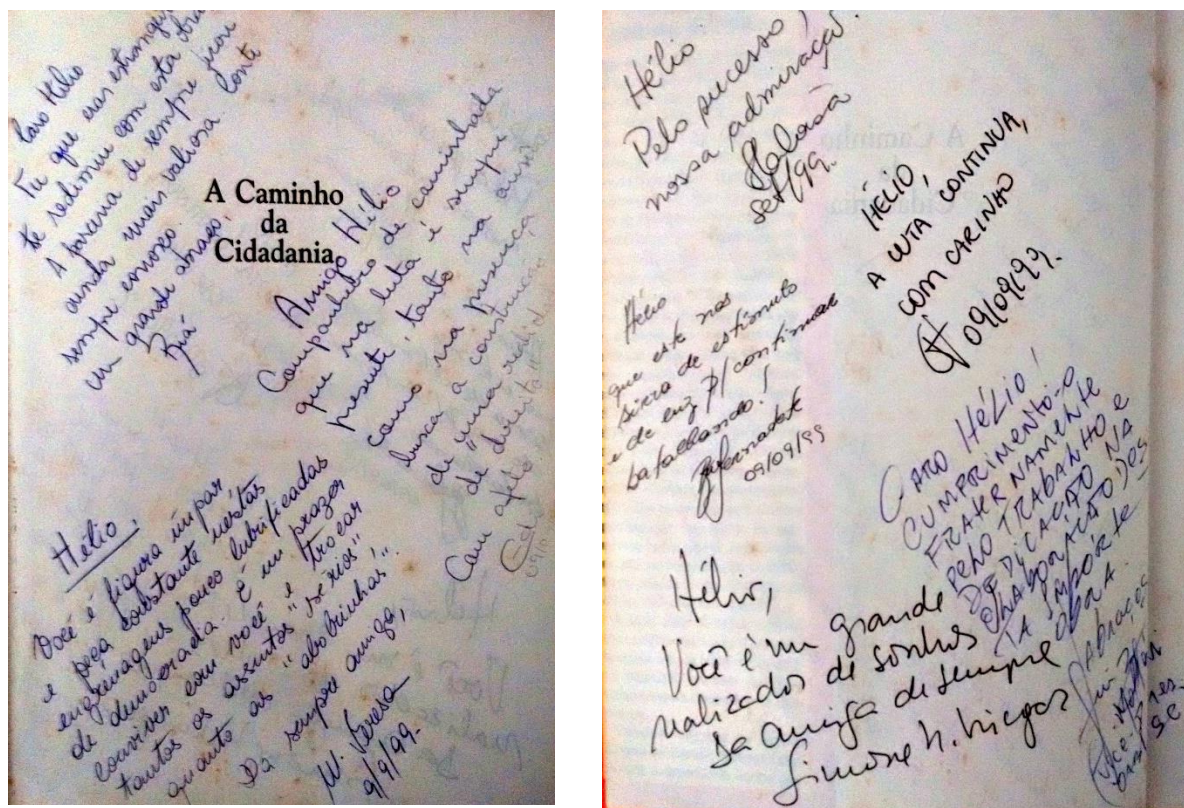 Caro Hélio
Tu que eras estrangeiro
te redimiu com esta obra
A parceria de sempre ficou
ainda mais valiosa. Conte
sempre conosco.
Um grande abraço,
A Caminho
da
Cidadania
Amigo Hélio
Companheiro de caminhada
que na luta é sempre
presente, tanto na
como na presença
busca a construção
de uma
de direita
Com
Hélio,
Você é figura impar
e peça constante nestas
engrenagens pouco lubrificadas
de demo É um prazer
conviver com você e trocar
tantos os assuntos "sérios"
quanto as "abobrinhas".
Da sempre amiga,
M. Teresa
9/9/99.
Hélio
Pelo sucesso
nossa admiração
set/99.
HÉLIO,
A LUTA CONTINUA,
COM CARINHO
09/09/99.
Hélio
que este nos
sirva de estímulo
e de luz p/ continuar
batalhando!
09/09/99
CARO HÉLIO!
CUMPRIMENTO-O
FRATERNAMENTE
PELO TRABALHO E
DEDICAÇÃO NA
ELABORAÇÃO DESTA
IMPORTE
OBRA.
Abraços
Hélio,
Você é um grande
realizador de sonhos
Da amiga de sempre
Simone